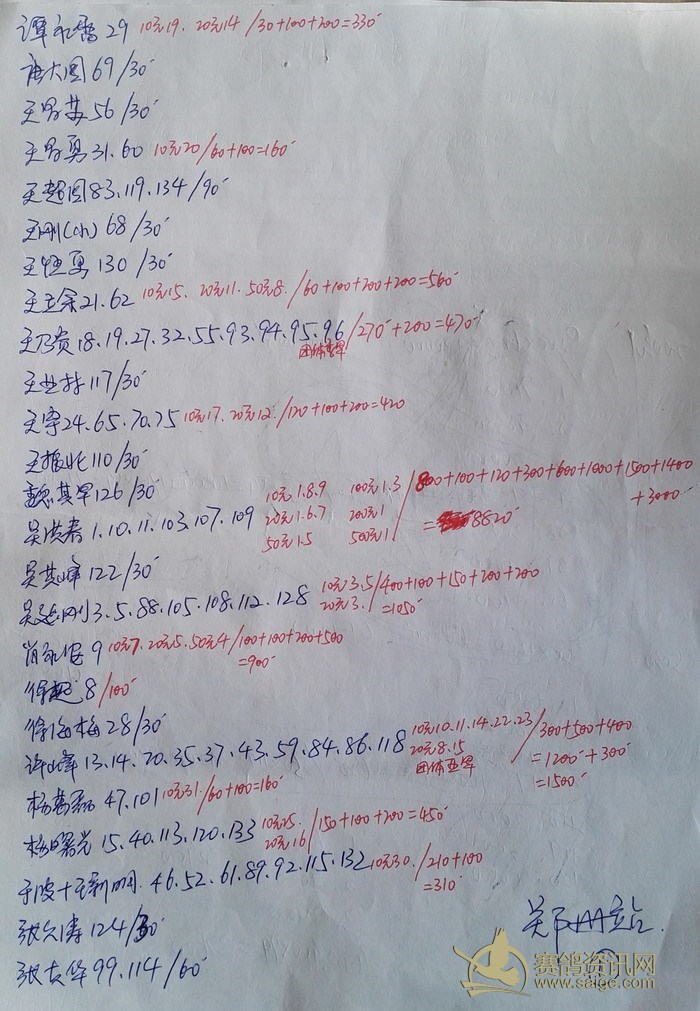 29 10元19. 20元14 /30+100+200=330
唐大圆 69/30
王号苏 56/30
王号勇 31.60 10元20/60+100=160
王超园 83.119.134/90
王刚(小) 68/30
王恒勇 130/30
21.62 10元15. 20元11. 50元8. /60+100+200+200=560
王乃贵 18.19.27.32.55.93.94.95.96/270+200=470
团体
117/30
王宇 24.65.70.75 10元17. 20元12. /120+100+200=420
王振北 110/30
魏其军 126/30
吴洪春 1.10.11.103.107.109 10元1.8.9 100元1.3 /800+100+120+300+600+1000+1500+1400
20元1.6.7 200元1 +3000
50元1.5 500元1 =8820
吴其峰 122/30
3.5.88.105.108.112.128 10元3.5/400+100+150+200+200
20元3. =1050
肖永 9 10元7. 20元5. 50元4/100+100+200+500
=900
徐超 8/100
徐海梅 28/30
许峰 13.14.20.35.37.43.59.84.86.118 10元10.11.14.22.23 /300+500+400
20元8.15 =1200+300
团体亚军 =1500
杨 47.101 10元31/60+100=160
杨曙光 15.40.113.120.133 10元25. /150+100+200=450
20元16
于波+王新明 46.52.61.89.92.115.132 10元30. /210+100
=310
张久涛 124/30
张大华 99.114/60
郑州站.
赛鸽资讯网
www.saige.com